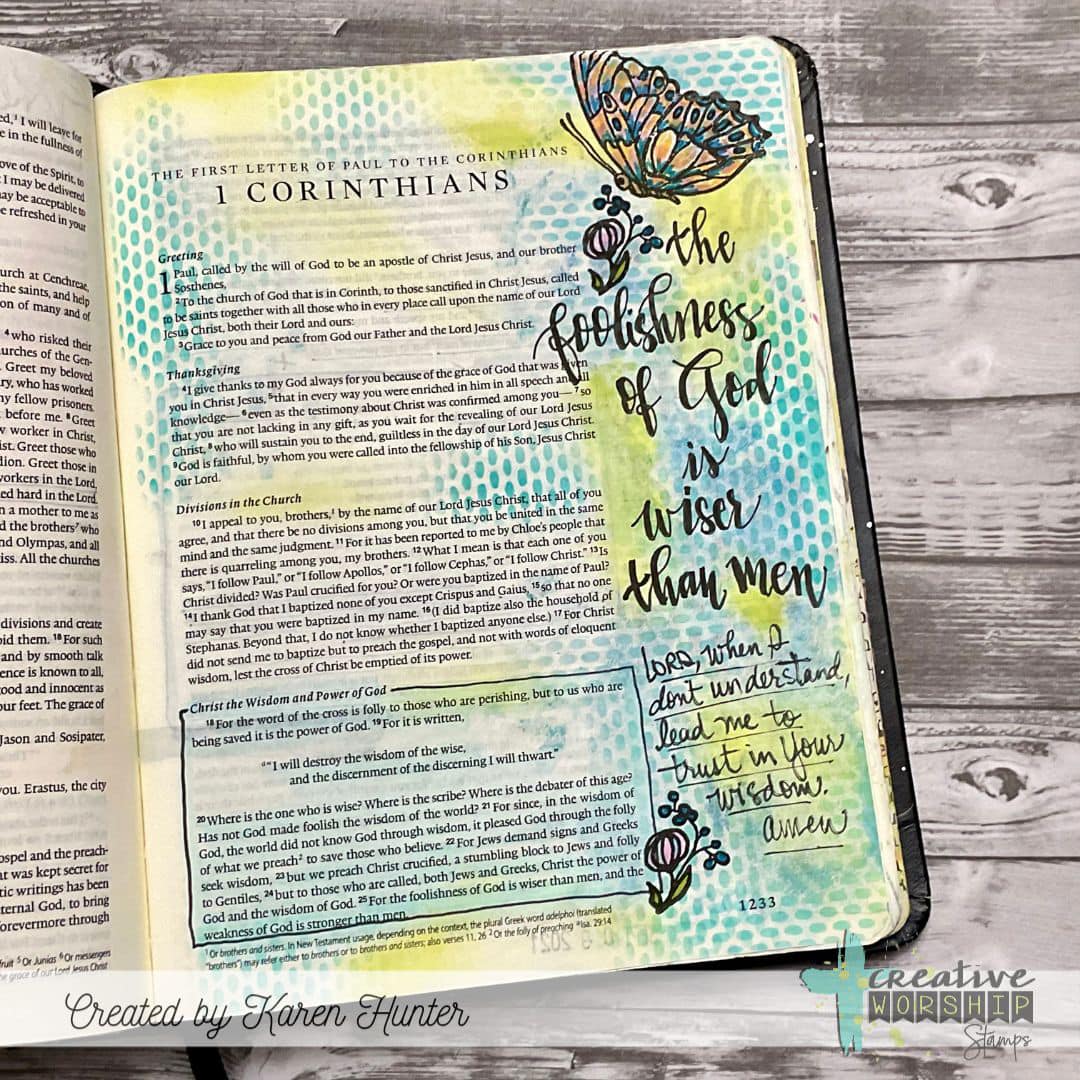 ed,³ I will leave for
e in the fullness of
ove of the Spirit, to
I may be delivered
may be acceptable to
e refreshed in your
urch at Cenchreae,
the saints, and help
on of many and of
⁴who risked their
urches of the Gen-
Greet my beloved
ry, who has worked
ny fellow prisoners.
before me. ⁸Greet
w worker in Christ,
ist. Greet those who
dion. Greet those in
workers in the Lord,
ed hard in the Lord.
n a mother to me as
d the brothers⁷ who
nd Olympas, and all
iss. All the churches
divisions and create
oid them. ¹⁸For such
and by smooth talk
ence is known to all,
ood and innocent as
our feet. The grace of
Jason and Sosipater,
you. Erastus, the city
ospel and the preach-
at was kept secret for
tic writings has been
ternal God, to bring
forevermore through
fruit ⁵Or Junias ⁶Or messengers
the grace of our Lord Jesus Christ
THE FIRST LETTER OF PAUL TO THE CORINTHIANS
1 CORINTHIANS
Greeting
1 Paul, called by the will of God to be an apostle of Christ Jesus, and our brother
Sosthenes,
²To the church of God that is in Corinth, to those sanctified in Christ Jesus, called
to be saints together with all those who in every place call upon the name of our Lord
Jesus Christ, both their Lord and ours:
³Grace to you and peace from God our Father and the Lord Jesus Christ.
Thanksgiving
⁴I give thanks to my God always for you because of the grace of God that was given
you in Christ Jesus, ⁵that in every way you were enriched in him in all speech and all
knowledge— ⁶even as the testimony about Christ was confirmed among you— ⁷so
that you are not lacking in any gift, as you wait for the revealing of our Lord Jesus
Christ, ⁸who will sustain you to the end, guiltless in the day of our Lord Jesus Christ.
⁹God is faithful, by whom you were called into the fellowship of his Son, Jesus Christ
our Lord.
Divisions in the Church
¹⁰I appeal to you, brothers,¹ by the name of our Lord Jesus Christ, that all of you
agree, and that there be no divisions among you, but that you be united in the same
mind and the same judgment. ¹¹For it has been reported to me by Chloe's people that
there is quarreling among you, my brothers. ¹²What I mean is that each one of you
says, "I follow Paul," or "I follow Apollos," or "I follow Cephas," or "I follow Christ." ¹³Is
Christ divided? Was Paul crucified for you? Or were you baptized in the name of Paul?
¹⁴I thank God that I baptized none of you except Crispus and Gaius, ¹⁵so that no one
may say that you were baptized in my name. ¹⁶(I did baptize also the household of
Stephanas. Beyond that, I do not know whether I baptized anyone else.) ¹⁷For Christ
did not send me to baptize but to preach the gospel, and not with words of eloquent
wisdom, lest the cross of Christ be emptied of its power.
Christ the Wisdom and Power of God
¹⁸For the word of the cross is folly to those who are perishing, but to us who are
being saved it is the power of God. ¹⁹For it is written,
ᵃ"I will destroy the wisdom of the wise,
and the discernment of the discerning I will thwart."
²⁰Where is the one who is wise? Where is the scribe? Where is the debater of this age?
Has not God made foolish the wisdom of the world? ²¹For since, in the wisdom of
God, the world did not know God through wisdom, it pleased God through the folly
of what we preach² to save those who believe. ²²For Jews demand signs and Greeks
seek wisdom, ²³but we preach Christ crucified, a stumbling block to Jews and folly
to Gentiles, ²⁴but to those who are called, both Jews and Greeks, Christ the power of
God and the wisdom of God. ²⁵For the foolishness of God is wiser than men, and the
weakness of God is stronger than men.
¹Or brothers and sisters. In New Testament usage, depending on the context, the plural Greek word adelphoi (translated
"brothers") may refer either to brothers or to brothers and sisters; also verses 11, 26 ²Or the folly of preaching ᵃIsa. 29:14
the
foolishness
of God
is
wiser
than men
LORD, when I
don't understand,
lead me to
trust in Your
wisdom.
amen
1233
Created by Karen Hunter
creative
WORSHIP
Stamps